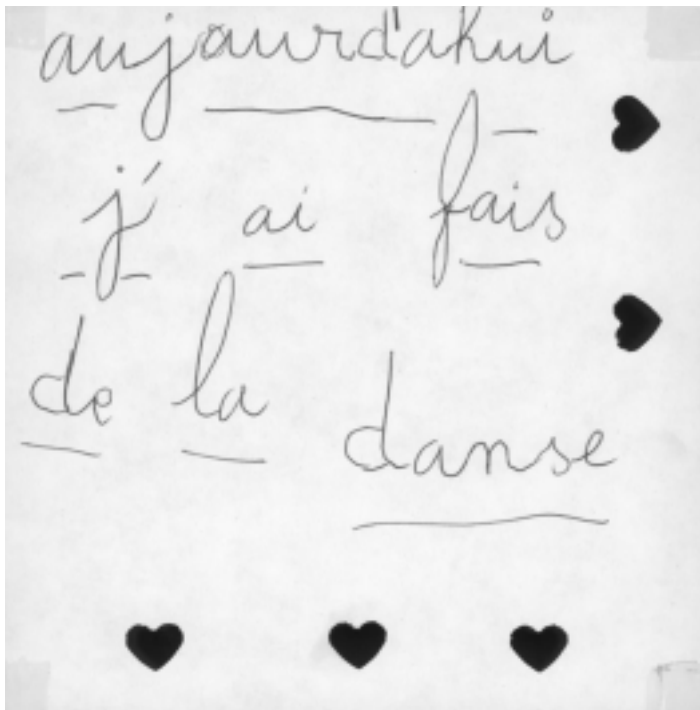 aujaurd'ahui
j' ai fais
de la danse